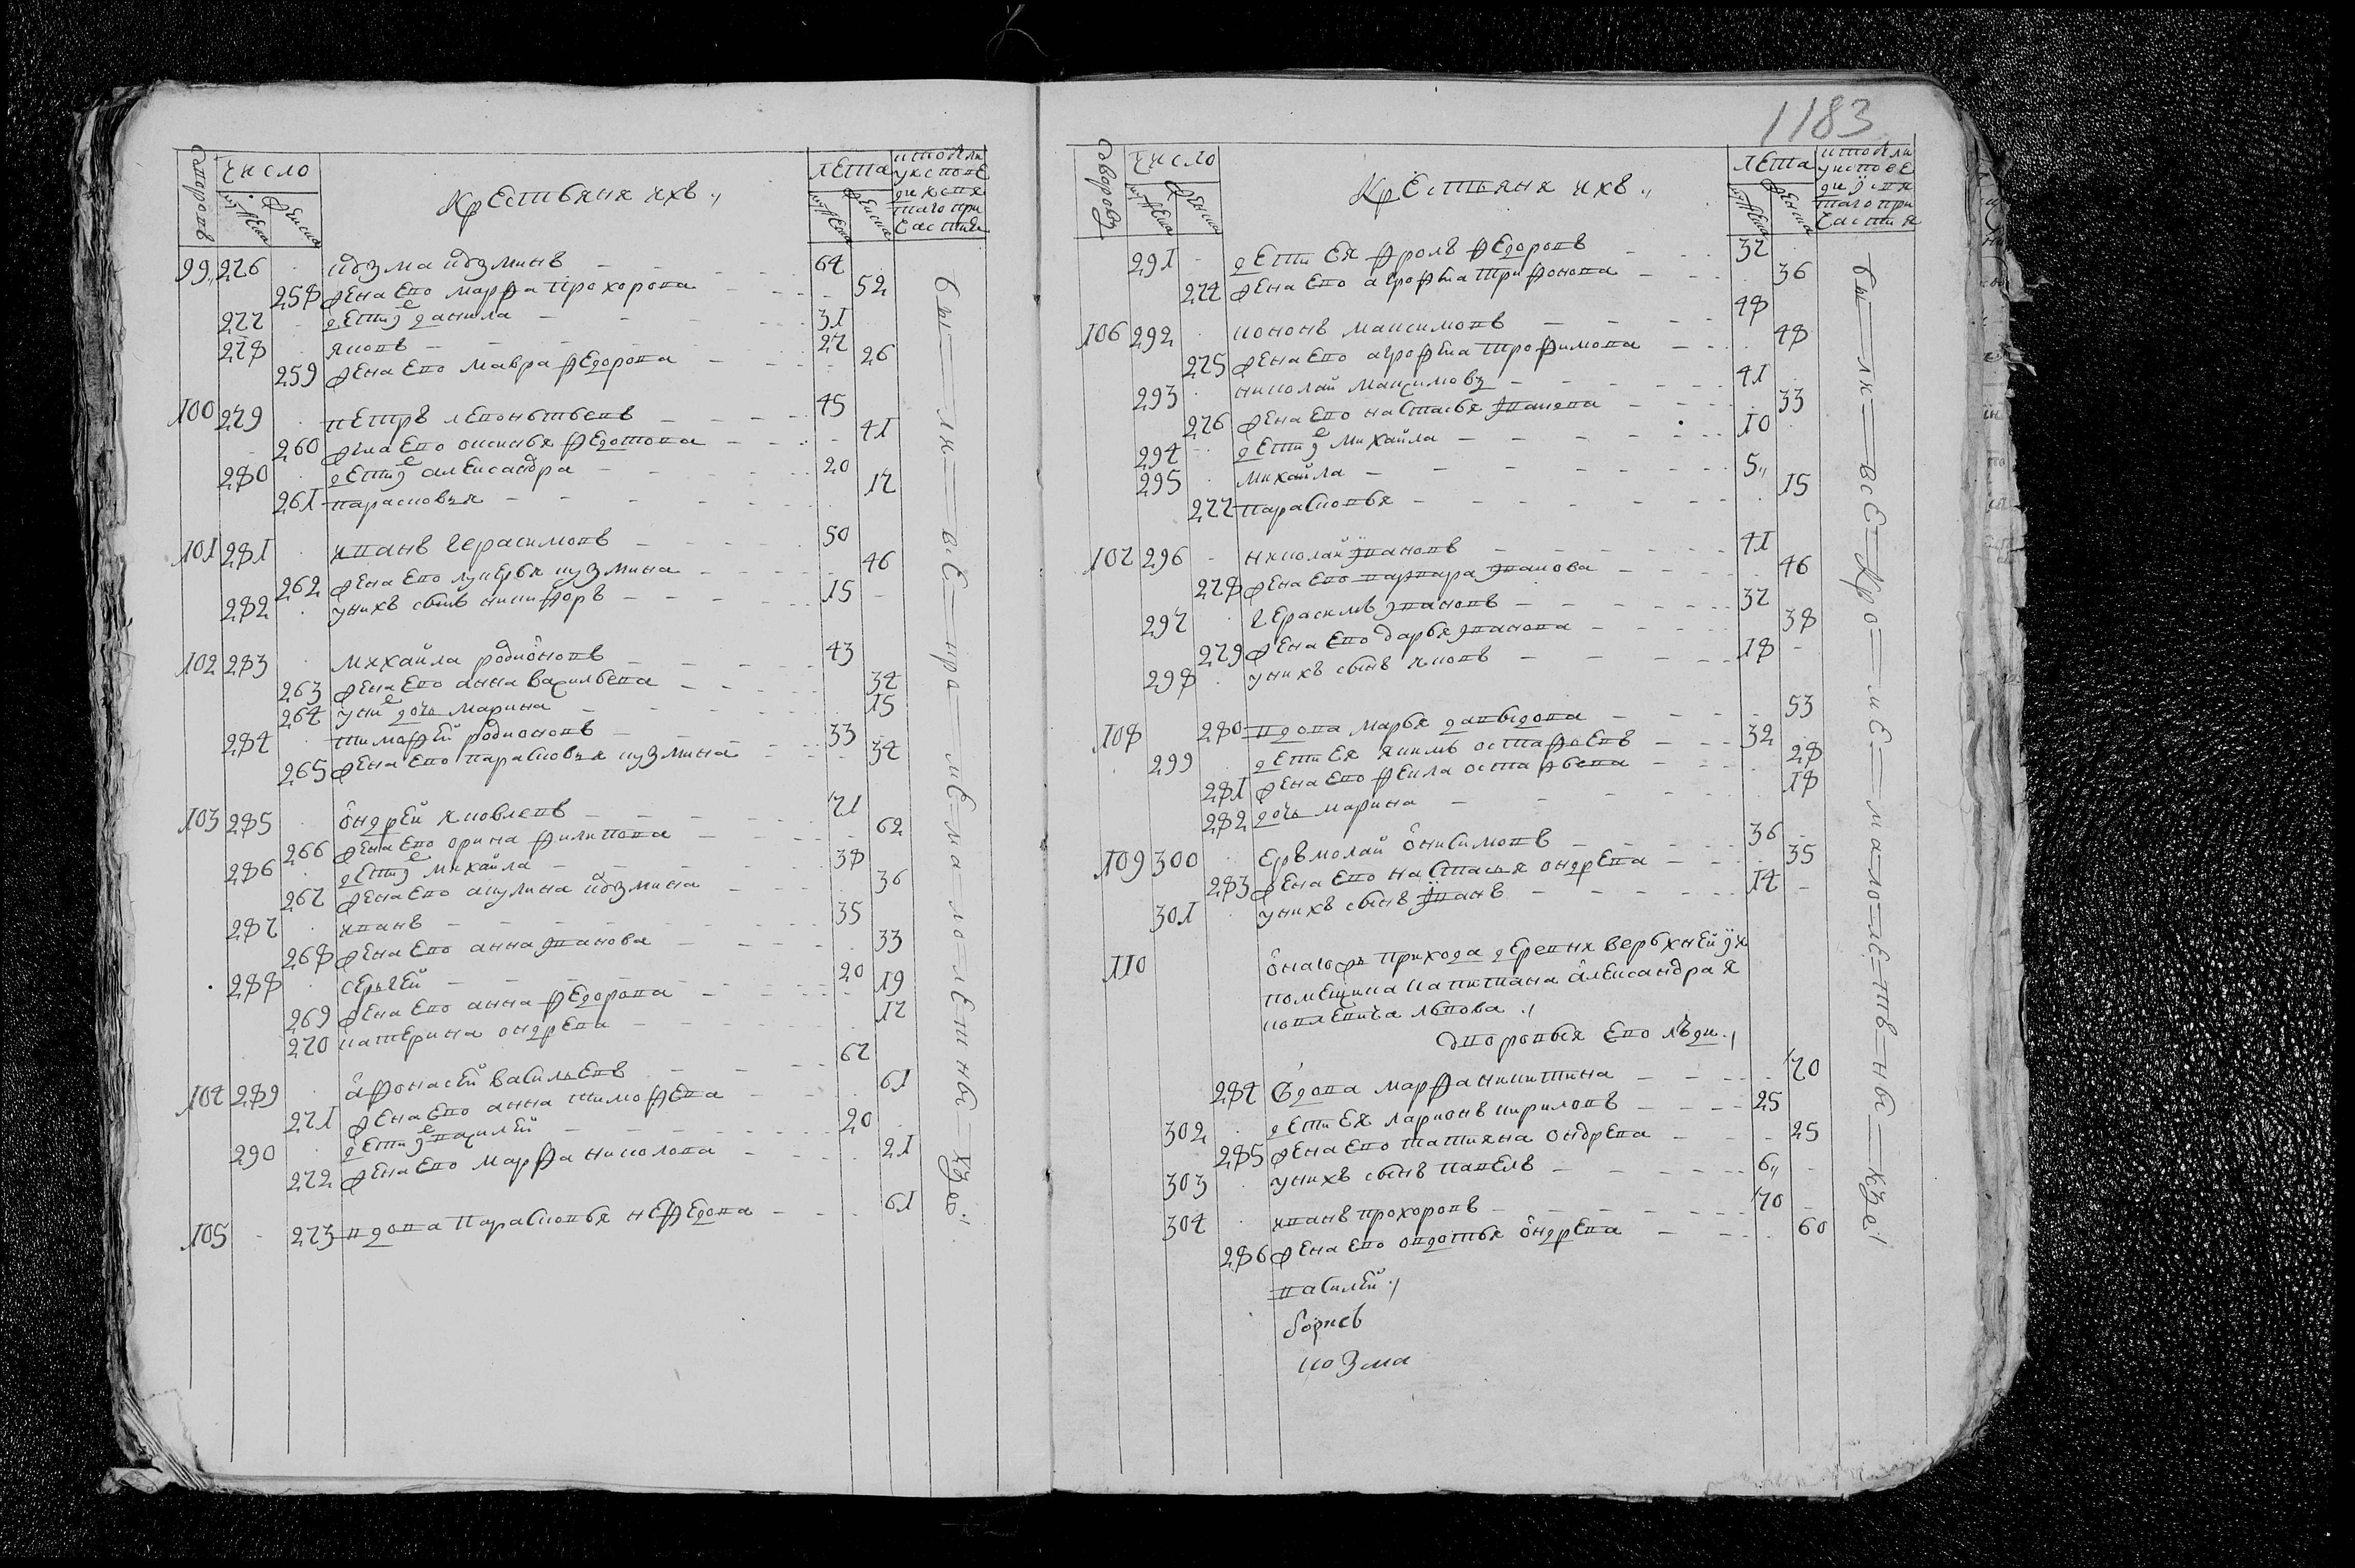 1183
Дворовъ
число
мужеска
женска
Крестьяня ихъ
лета
мужеска
женска
ктобыли
уисповѣ
ди исвя
таго при
частия
99 276 кузма кузминъ 64
258 жена ево марфа прохорова 52
277 дети е данила 31
278 яковъ 27
259 жена ево мавра федорова 26
100 279 петръ леоньтьевъ 45
260 жена ево оксинья федотова 41
280 дети е александра 20
261 парасковья 17
101 281 иванъ герасимовъ 50
262 жена ево лукерья кузмина 46
282 унихъ сынъ никифоръ 15
102 283 михайла родионовъ 43
263 жена ево анна васильева 34
264 уни дочь марина 15
284 тимофей родионовъ 33
265 жена ево парасковья кузмина 34
103 285 ондрей яковлевъ 71
266 жена ево орина филипова 62
286 дети е михайла 38
267 жена ево акулина кузмина 36
287 иванъ 35
268 жена ево анна иванова 33
288 сергей 20
269 жена ево анна федорова 19
270 катерина ондрева 17
104 289 афонасей васильевъ 67
271 жена ево анна тимофева 61
290 дети е василей 20
272 жена ево марфа николова 21
105 273 вдова парасковья нефедова 61
бы ли все кро ме ма ло лет ны хъ
Дворовъ
число
мужеска
женска
Крестьяня ихъ
лета
мужеска
женска
ктобыли
уисповѣ
ди исвя
таго при
частия
291 дети ея фролъ федоровъ 37
274 жена ево агрофена трифонова 36
106 292 кононъ максимовъ 48
275 жена ево агрофена трофимова 48
293 николай максимовъ 41
276 жена ево настасья иванова 33
294 дети е михайла 10
295 михайла 5
277 парасковья 15
107 296 николай ивановъ 41
278 жена ево варвара иванова 46
297 герасимъ ивановъ 37
279 жена ево дарья иванова 38
298 унихъ сынъ яковъ 18
108 280 вдова марья давыдова 53
299 дети ея якимъ остафьевъ 32
281 жена ево фекла остафьева 28
282 дочь марина 18
109 300 ерьмолай онисимовъ 36
283 жена ево настасья ондрева 35
301 унихъ сынъ иванъ 14
110 онагожъ прихода деревни верьхней
помещика капитана александра я
ковлевича львова
дворовыя ево люди
284 вдова марфа никитина 70
302 дети ея ларионъ кириловъ 25
285 жена ево татияна ондрева 25
303 унихъ сынъ павелъ 6
304 иванъ прохоровъ 70
286 жена ево овдотья ондрева 60
василей
борисъ
козма
бы ли все кро ме ма ло лет ны хъ